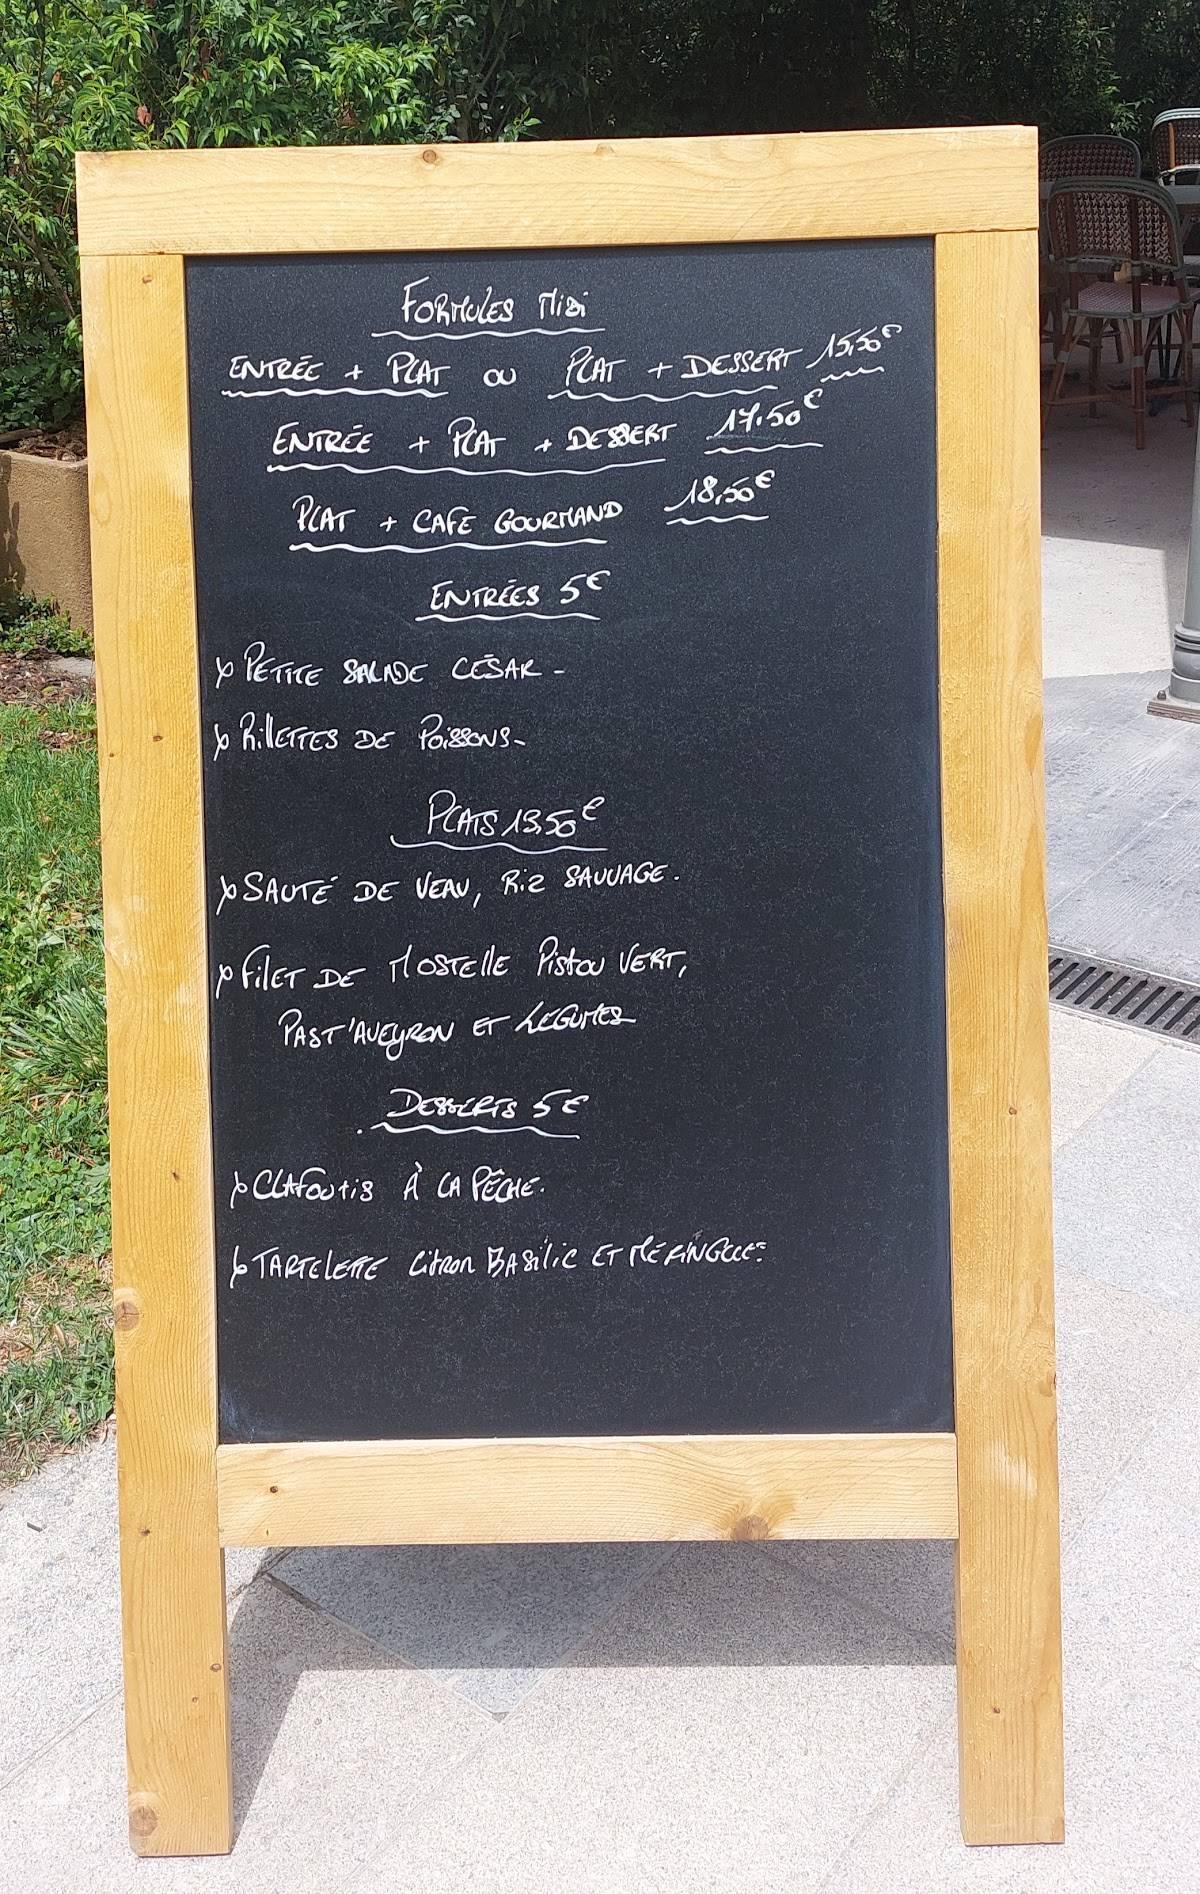 FORMULES MIDI
ENTRÉE + PLAT OU PLAT + DESSERT 15,50€
ENTRÉE + PLAT + DESSERT 17.50€
PLAT + CAFE GOURMAND 18,50€
ENTRÉES 5€
PETITE SALADE CÉSAR -
RillETTES DE POiSSONS -
PLATS 13,50€
SAUTÉ DE VEAU, RiZ SAUVAGE.
FILET DE MOSTEllE PiStOU VERT,
PAST'AVEYRON ET LÉGUMES
DESSERTS 5€
CLAFOUtiS À LA PÊCHE.
TARTELETTE CitRON BASilic ET MÉRINGUÉE